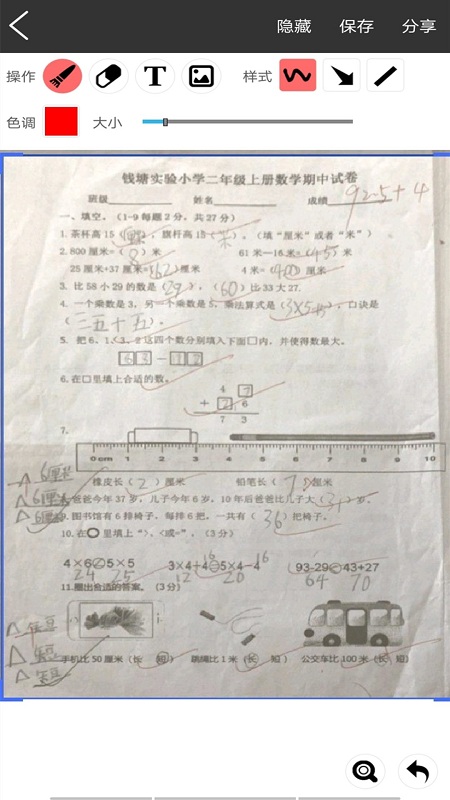 隐藏 保存 分享
操作 T 样式
色调 大小
钱塘实验小学二年级上册数学期中试卷
班级 姓名 成绩
92.5+4
一、填空。（1-9每题2分，共27分）
1. 茶杯高15（厘米），旗杆高15（米）。（填“厘米”或者“米”）
2. 800厘米=（8）米 61米－16米=（45）米
25厘米+37厘米=（62）厘米 4米=（400）厘米
3. 比58小29的数是（29），（60）比33大27.
4. 一个乘数是3，另一个乘数是5，乘法算式是（3×5=15），口诀是
（三五十五）。
5. 把6、1、3、2这四个数分别填入下面口内，并使得数最大。
6 3 －
6. 在口里填上合适的数。
4 7
+ 2 6
7 3
7.
0cm 1 2 3 4 5 6 7 8 9 10
6厘米 橡皮长（2）厘米 铅笔长（7）厘米
6厘米 爸爸今年37岁，儿子今年6岁，10年后爸爸比儿子大（31）岁。
6厘米 9. 图书馆有6排椅子，每排6把，一共有（36）把椅子。
10. 在〇里填上“>、<或=”。（3分）
4×6 5×5 3×4+4 5×4-4 93-29 43+27
24 25 12 16 20 16 64 70
11. 圈出合适的答案。（3分）
短
短
短
手机比50厘米（长 短） 跳绳比1米（长 短） 公交车比100米（长 短）